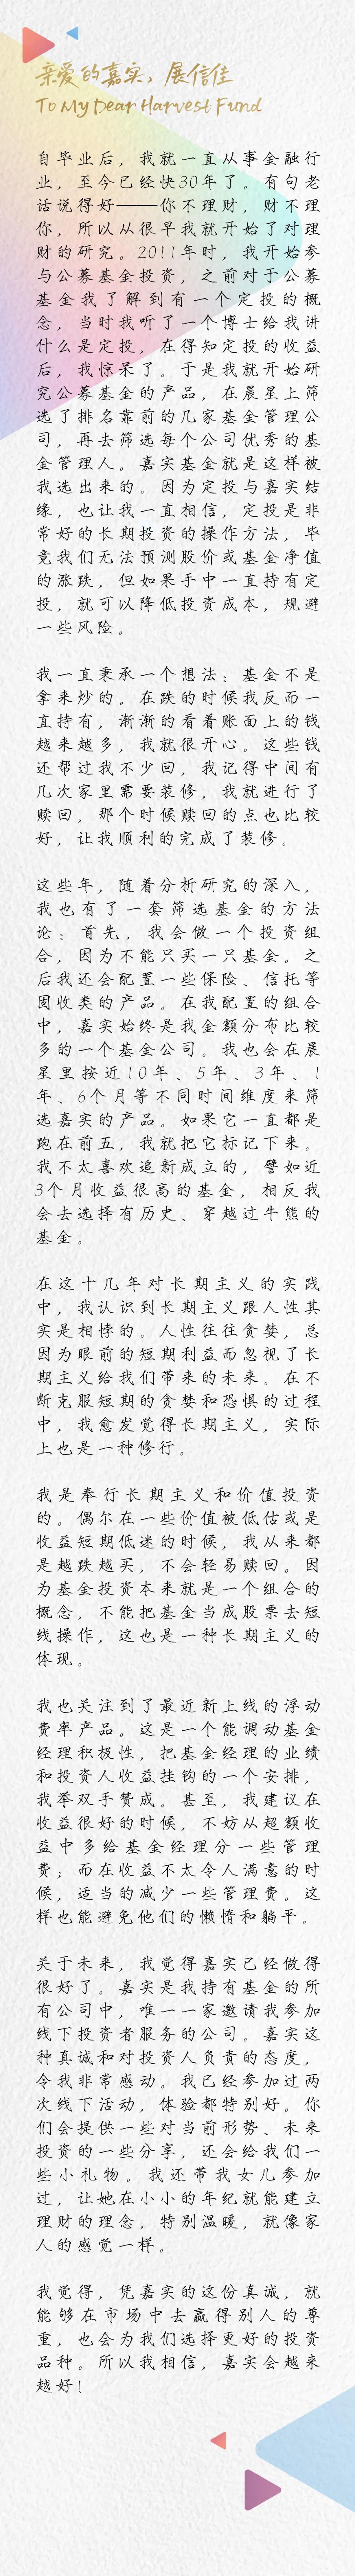 亲爱的嘉实，展信佳
To My Dear Harvest Fund
自毕业后，我就一直从事金融行
业，至今已经快30年了。有句老
话说得好——你不理财，财不理
你，所以从很早我就开始了对理
财的研究。2011年时，我开始参
与公募基金投资，之前对于公募
基金我了解到有一个定投的概
念，当时我听了一个博士给我讲
什么是定投，在得知定投的收益
后，我惊呆了。于是我就开始研
究公募基金的产品，在晨星上筛
选了排名靠前的几家基金管理公
司，再去筛选每个公司优秀的基
金管理人。嘉实基金就是这样被
我选出来的。因为定投与嘉实结
缘，也让我一直相信，定投是非
常好的长期投资的操作方法，毕
竟我们无法预测股价或基金净值
的涨跌，但如果手中一直持有定
投，就可以降低投资成本，规避
一些风险。
我一直秉承一个想法：基金不是
拿来炒的。在跌的时候我反而一
直持有，渐渐的看着账面上的钱
越来越多，我就很开心。这些钱
还帮过我不少回，我记得中间有
几次家里需要装修，我就进行了
赎回，那个时候赎回的点也比较
好，让我顺利的完成了装修。
这些年，随着分析研究的深入，
我也有了一套筛选基金的方法
论：首先，我会做一个投资组
合，因为不能只买一只基金。之
后我还会配置一些保险、信托等
固收类的产品。在我配置的组合
中，嘉实始终是我金额分布比较
多的一个基金公司。我也会在晨
星里按近10年、5年、3年、1
年、6个月等不同时间维度来筛
选嘉实的产品。如果它一直都是
跑在前五，我就把它标记下来。
我不太喜欢追新成立的，譬如近
3个月收益很高的基金，相反我
会去选择有历史、穿越过牛熊的
基金。
在这十几年对长期主义的实践
中，我认识到长期主义跟人性其
实是相悖的。人性往往贪婪，总
因为眼前的短期利益而忽视了长
期主义给我们带来的未来。在不
断克服短期的贪婪和恐惧的过程
中，我愈发觉得长期主义，实际
上也是一种修行。
我是奉行长期主义和价值投资
的。偶尔在一些价值被低估或是
收益短期低迷的时候，我从来都
是越跌越买，不会轻易赎回。因
为基金投资本来就是一个组合的
概念，不能把基金当成股票去短
线操作，这也是一种长期主义的
体现。
我也关注到了最近新上线的浮动
费率产品。这是一个能调动基金
经理积极性，把基金经理的业绩
和投资人收益挂钩的一个安排，
我举双手赞成。甚至，我建议在
收益很好的时候，不妨从超额收
益中多给基金经理分一些管理
费；而在收益不太令人满意的时
候，适当的减少一些管理费。这
样也能避免他们的懒惰和躺平。
关于未来，我觉得嘉实已经做得
很好了。嘉实是我持有基金的所
有公司中，唯一一家邀请我参加
线下投资者服务的公司。嘉实这
种真诚和对投资人负责的态度，
令我非常感动。我已经参加过两
次线下活动，体验都特别好。你
们会提供一些对当前形势、未来
投资的一些分享，还会给我们一
些小礼物。我还带我女儿参加
过，让她在小小的年纪就能建立
理财的理念，特别温暖，就像家
人的感觉一样。
我觉得，凭嘉实的这份真诚，就
能够在市场中去赢得别人的尊
重，也会为我们选择更好的投资
品种。所以我相信，嘉实会越来
越好！